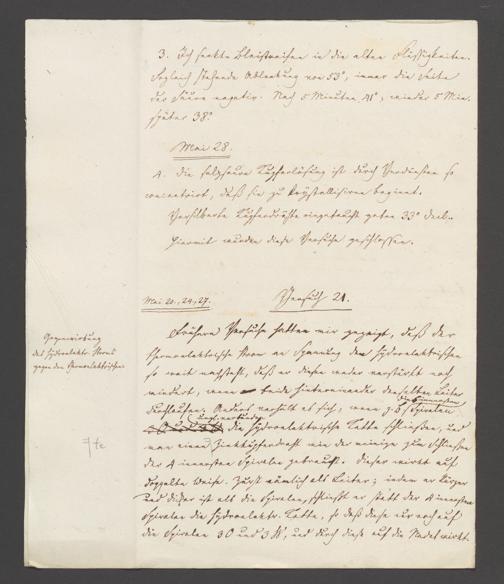 3. Ich senkte Bleistreifen in die alten Flüssigkeiten.
Sogleich stehende Ablenkung von 53°, immer die Seite
der Säure negativ. Nach 5 Minuten 41°, wieder 5 Min.
später 38°
Mai 28.
4. Die salzsaure Kupferlösung ist durch Verdunsten so
concentrirt, daß sie zu krystallisiren beginnt.
Versilberte Kupferdrähte eingetaucht gaben 33° Decl.
Hiermit wurden diese Versuche geschlossen.
Mai 20., 24., 27.
Versuch 21.
Gegenwirkung
des hydroelektr. Stroms
gegen den thermoelektrischen
Frühere Versuche hatten mir gezeigt, daß der
thermoelektrische Strom an Spannung dem hydroelektrischen
so weit nachsteht, daß er diesen weder verstärkt noch
mindert, wenn beide hintereinander denselben Leiter
durchlaufen. Anders verhält es sich, wenn z. B. Spiralen
die hydroelektrische Kette schließen, und
man einen Zink wie der meinige zum Schließen
der 4 innersten Spiralen gebraucht. Dieser wirkt auf
doppelte Weise. Zuerst nämlich als Leiter; indem er kürzer
und dicker ist als die Spiralen, schließt er statt der 4 innersten
Spiralen die hydroelektr. Kette, so daß diese nur noch auf
die Spiralen 3 O und 3 W, und durch diese auf die Nadel wirkt.